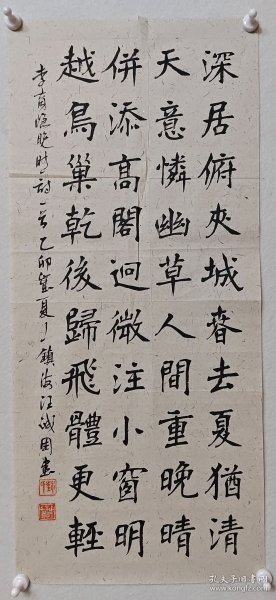 深居俯夾城春去夏猶清
天意憐幽草人間重晚晴
併添高閣迥微注小窗明
越鳥巢乾後歸飛體更輕
李商隱晚晴詩一首乙卯夏鎮海汪
孔夫子旧书网